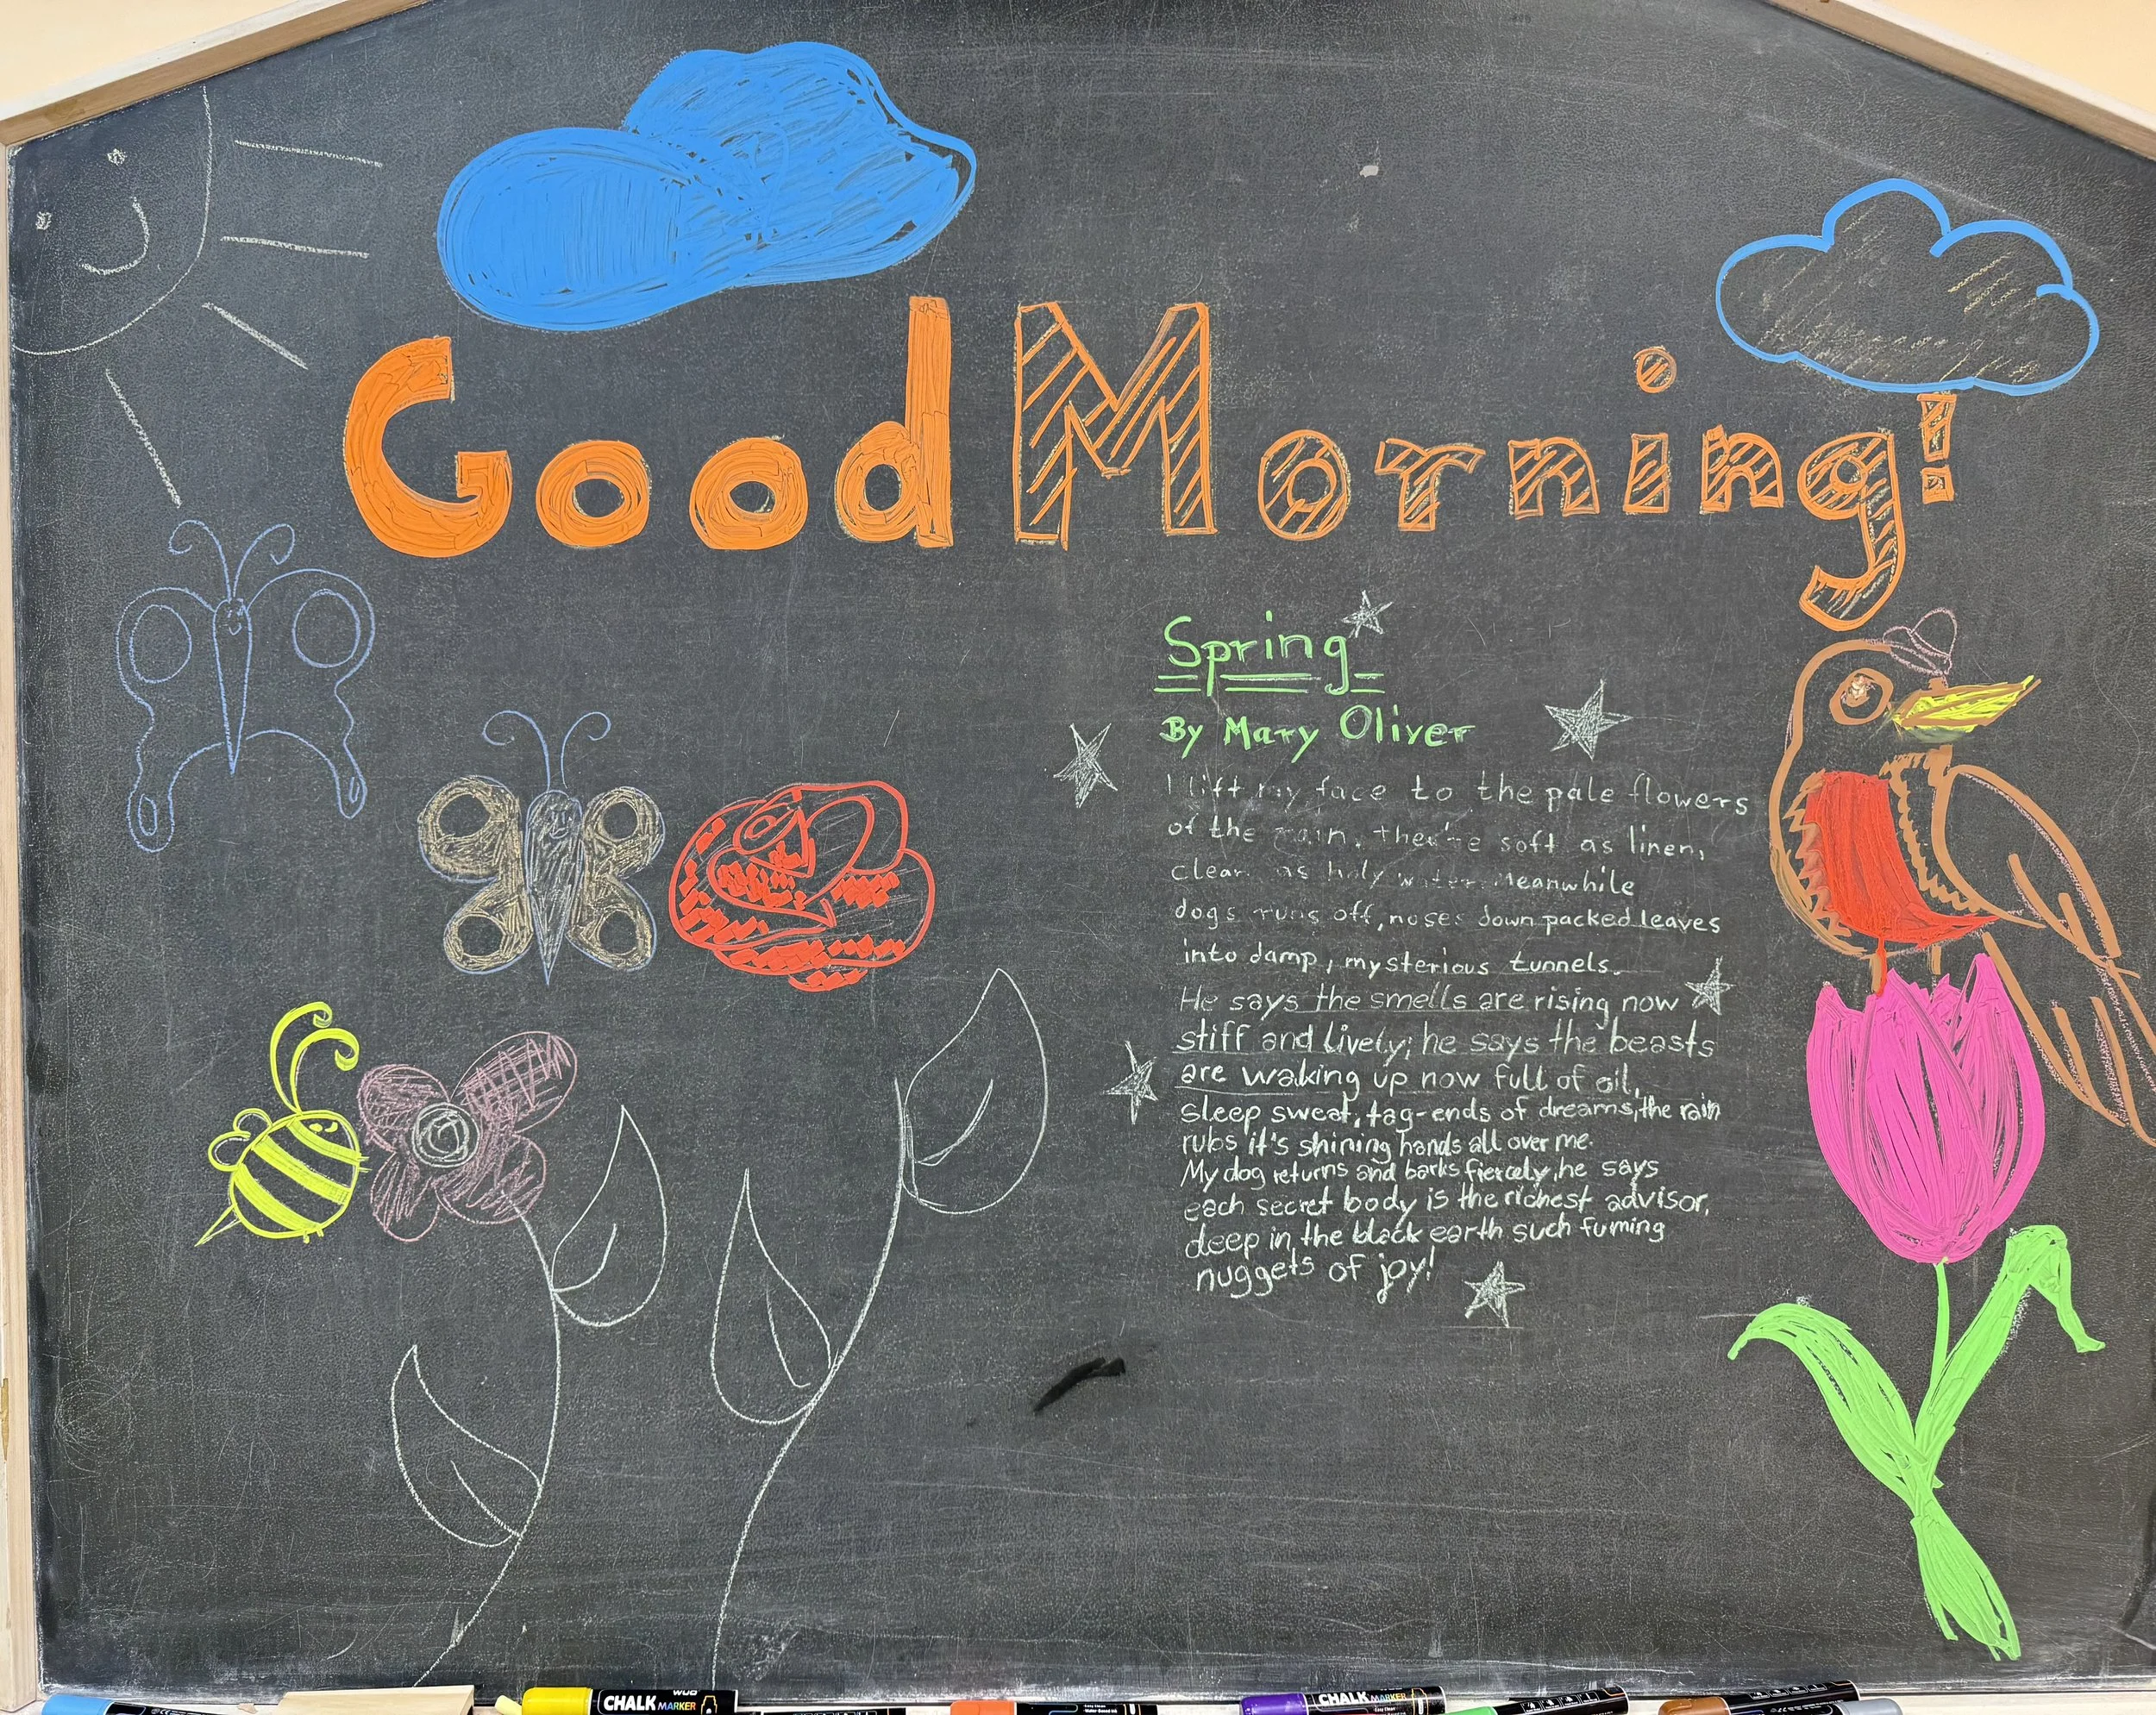 Good Morning!
Spring
By Mary Oliver
I lift my face to the pale flowers
of the rain. they're soft as linen,
clean as holy water. Meanwhile
dogs runs off, noses down packed leaves
into damp, mysterious tunnels.
He says the smells are rising now
stiff and lively; he says the beasts
are waking up now full of oil,
sleep sweat, tag-ends of dreams, the rain
rubs it's shining hands all over me.
My dog returns and barks fiercely, he says
each secret body is the richest advisor,
deep in the black earth such fuming
nuggets of joy!
CHALK MARKER
CHALK MARKER